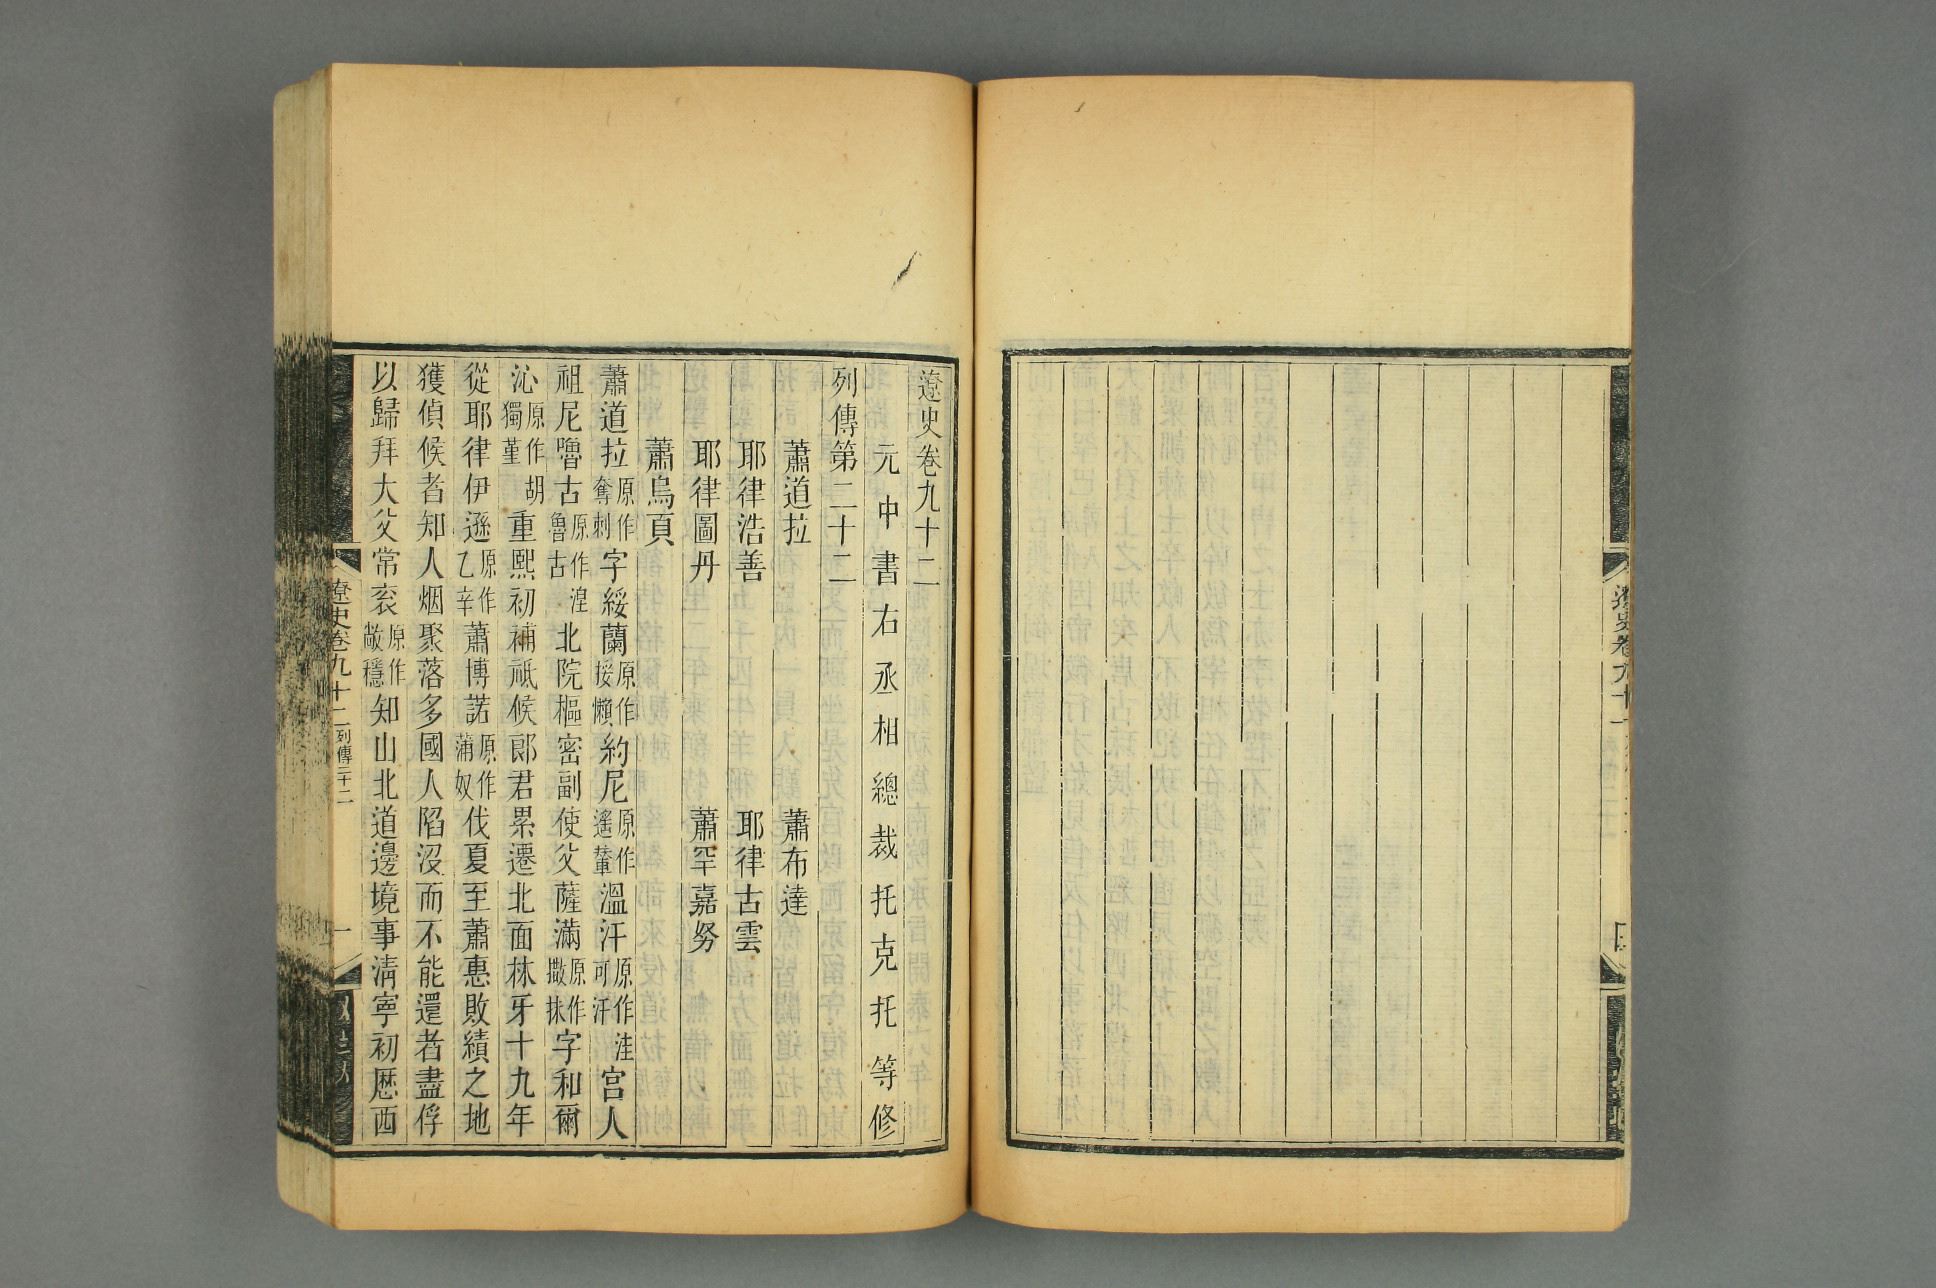 遼史卷九十一
遼史卷九十二
元中書右丞相總裁托克托等修
列傳第二十二
蕭道拉　蕭布達
耶律浩善　耶律古雲
耶律圖丹　蕭罕嘉努
蕭烏頁
蕭道拉原作奪剌字綏蘭原作挼懶約尼原作遙輦溫汗原作洼可汗宮人
祖尼嚕古原作湼魯古北院樞密副使父薩滿原作撒抹字和爾
沁原作胡獨堇重熙初補祗候郎君累遷北面林牙十九年
從耶律伊遜原作乙辛蕭博諾原作蒲奴伐夏至蕭惠敗績之地
獲偵候者知人烟聚落多國人陷沒而不能還者盡俘
以歸拜大父常衮原作敞穩知山北道邊境事淸寧初歷西
遼史卷九十二列傳二十二　一